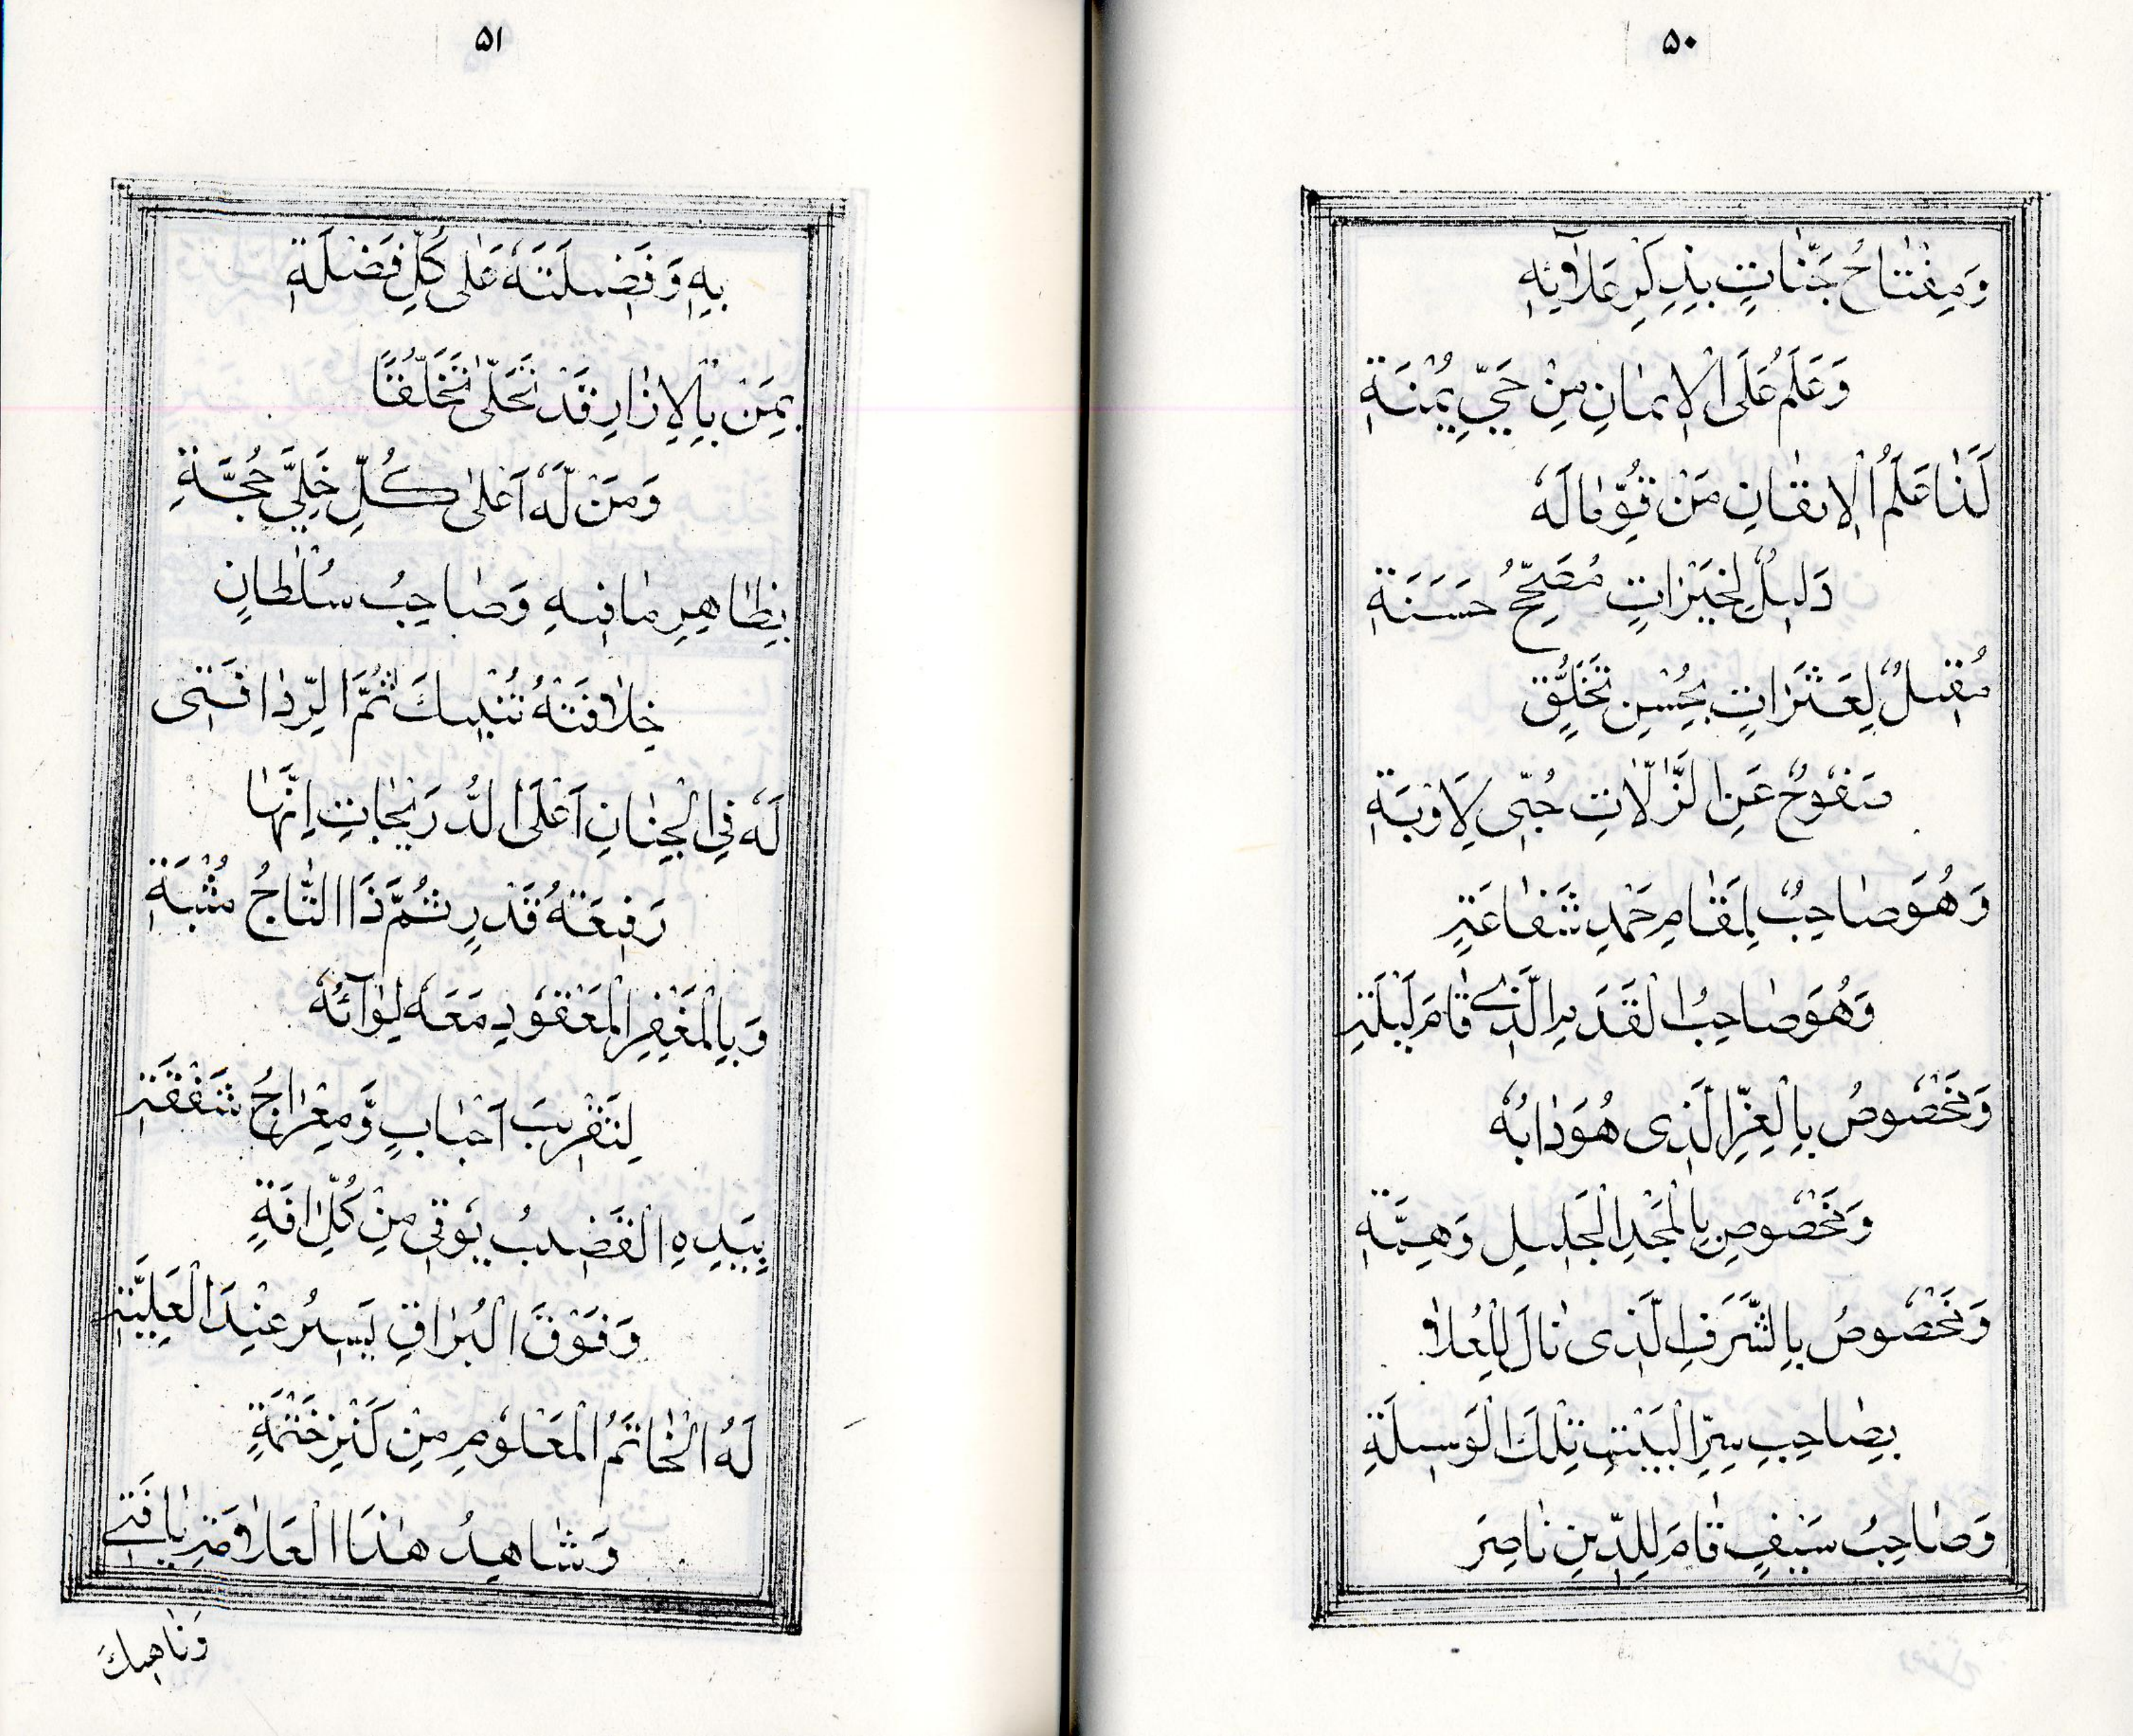 ۵۰
وَمِفْتَاحُ جَنَّاتٍ بِذِكْرِ عَلَاقَةِ
وَعَلَمُ عَلَى الْاِيمَانِ مِنْ حَيِّ يُمْنَةِ
لَنَا عَلَمُ الْاِتْقَانِ مَنْ قُوِّمَا لَهُ
دَلِيلُ لِخَيْرَاتٍ مُصَحِّحُ حَسَنَةِ
مُقِيلُ لِعَثَرَاتٍ بِحُسْنِ تَخَلُّقٍ
صَفُوحُ عَنِ الزَّلَّاتِ حُبِّى لِاَوْبَةِ
وَهُوَ صَاحِبُ لِمَقَامِ حَمْدِ شَفَاعَةٍ
وَهُوَ صَاحِبُ الْقَدَمِ الَّذِى قَامَ لَيْلَةٍ
وَمَخْصُوصُ بِالْعِزِّ الَّذِى هُوَ دَابُهُ
وَمَخْصُوصِ بِالْمَجْدِ الْجَلِيلِ وَهِمَّةِ
وَمَخْصُوصُ بِالشَّرَفِ الَّذِى نَالَ لِلْعُلَا
بِصَاحِبِ سِرِّ الْبَيْتِ تِلْكَ الْوَسِيلَةِ
وَصَاحِبُ سَيْفٍ قَامَ لِلدِّينِ نَاصِرَ
۵۱
بِهِ وَفَضِيلَتَهُ عَلَى كُلِّ فَضْلَةِ
بِمَنْ بِالْاِزَارِ قَدْ تَحَلَّى تَخَلُّقًا
وَمَنْ لَهُ اَعْلَى كُلِّ خَلِيٍّ حُجَّةِ
بِظَاهِرِ مَا فِيهِ وَصَاحِبُ سُلْطَانٍ
خِلَافَتَهُ تُنْبِيكَ ثُمَّ الرِّدَا فَتِى
لَهُ فِى الْجِنَانِ اَعْلَى الدَّرَجَاتِ اِنَّهَا
رَفِيعَةُ قَدْرٍ ثُمَّ ذَا التَّاجُ مُثْبَةِ
وَبِالْمَغْفِرِ الْمَعْقُودِ مَعَهُ لِوَآئُهُ
لِتَقْرِيبِ اَحْبَابٍ وَمِعْرَاجُ شَفْقَةٍ
بِيَدِهِ الْقَضِيبُ يُوقِى مِنْ كُلِّ اٰفَةٍ
وَفَوْقَ الْبُرَاقِ يَسِيرُ عِنْدَ الْعَلِيَّةِ
لَهُ الْخَاتَمُ الْمَعْلُومِ مِنْ كَنْزِ خَتْمَةِ
وَشَاهِدُ هٰذَا الْعَلَامَةِ يَا فَتِى
وَنَاهِيكَ